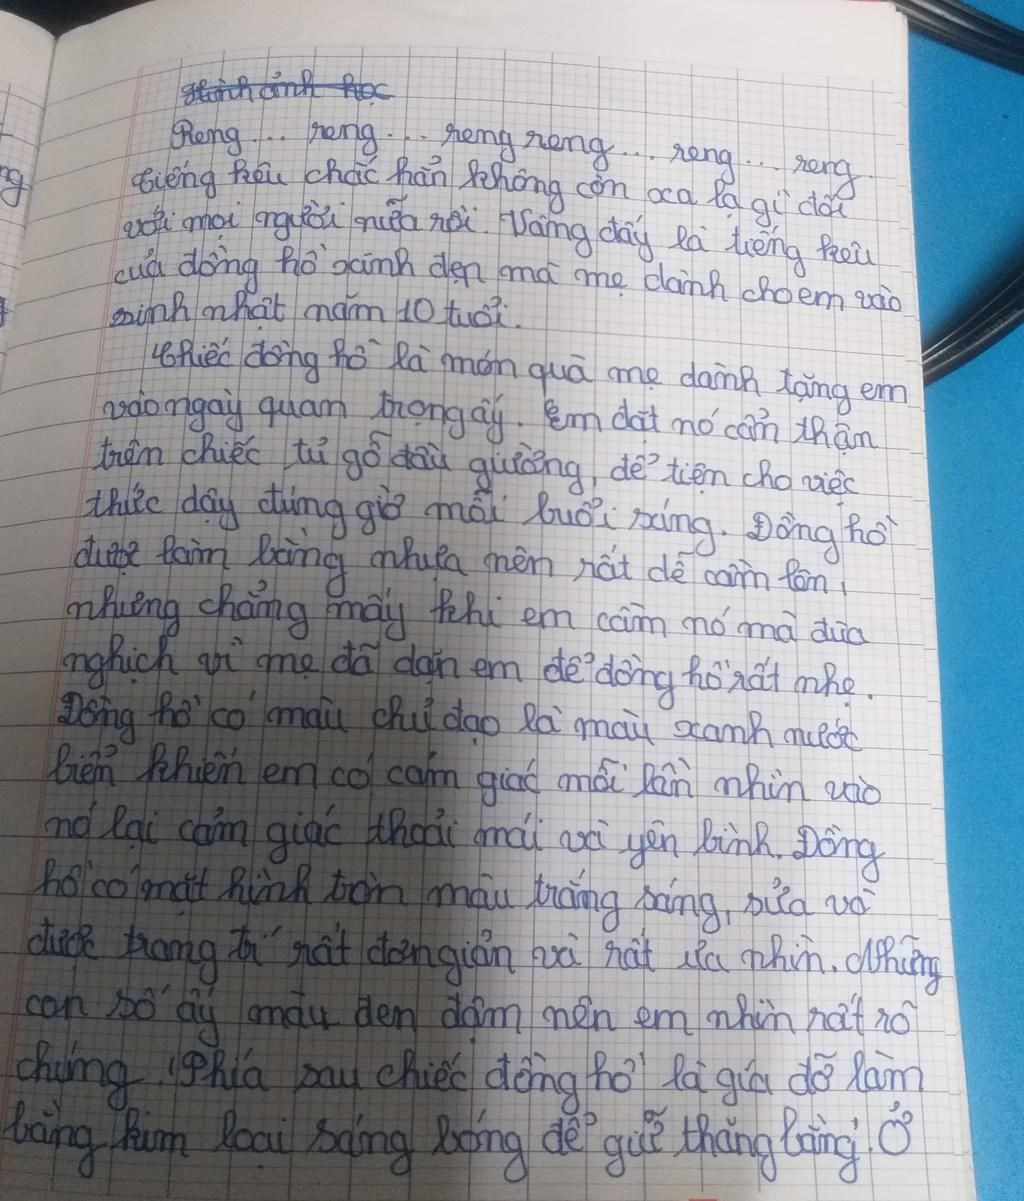 Hình ảnh học
Reng... reng... reng reng... reng... reng.
tiếng kêu chắc hẳn không còn xa lạ gì đối
với mọi người nữa rồi. Vâng đấy là tiếng kêu
của đồng hồ xinh đẹp mà mẹ dành cho em vào
sinh nhật năm 10 tuổi.
Chiếc đồng hồ là món quà mẹ dành tặng em
vào ngày quan trọng ấy. Em đặt nó cẩn thận
trên chiếc tủ gỗ đầu giường, để tiện cho việc
thức dậy đúng giờ mỗi buổi sáng. Đồng hồ
được làm bằng nhựa nên rất dễ cầm lên,
nhưng chẳng mấy khi em cầm nó mà đùa
nghịch vì mẹ đã dặn em để đồng hồ rất nhẹ.
Đồng hồ có màu chủ đạo là màu xanh nước
biển khiến em có cảm giác mỗi lần nhìn vào
nó lại cảm giác thoải mái và yên bình. Đồng
hồ có mặt hình tròn màu trắng sáng, sữa và
được trang trí rất đơn giản và rất ưa nhìn. Những
con số ấy màu đen đậm nên em nhìn rất rõ
chúng. Phía sau chiếc đồng hồ là giá đỡ làm
bằng kim loại sáng bóng để giữ thăng bằng. Ở